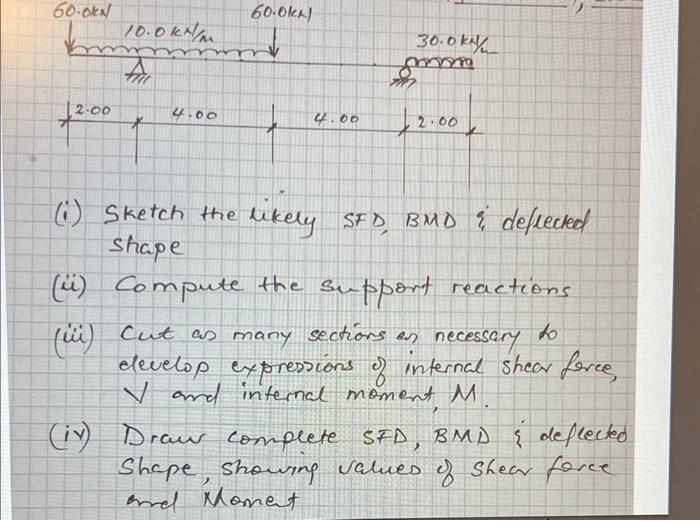 60.0kN 60.0kN
10.0 kN/m
30.0 kN/m
2.00 4.00 4.00 2.00
(i) Sketch the likely SFD, BMD & deflected
shape
(ii) Compute the support reactions
(iii) Cut as many sections as necessary to
develop expressions of internal shear force,
V and internal moment, M.
(iv) Draw complete SFD, BMD & deflected
Shape, showing values of shear force
and Moment